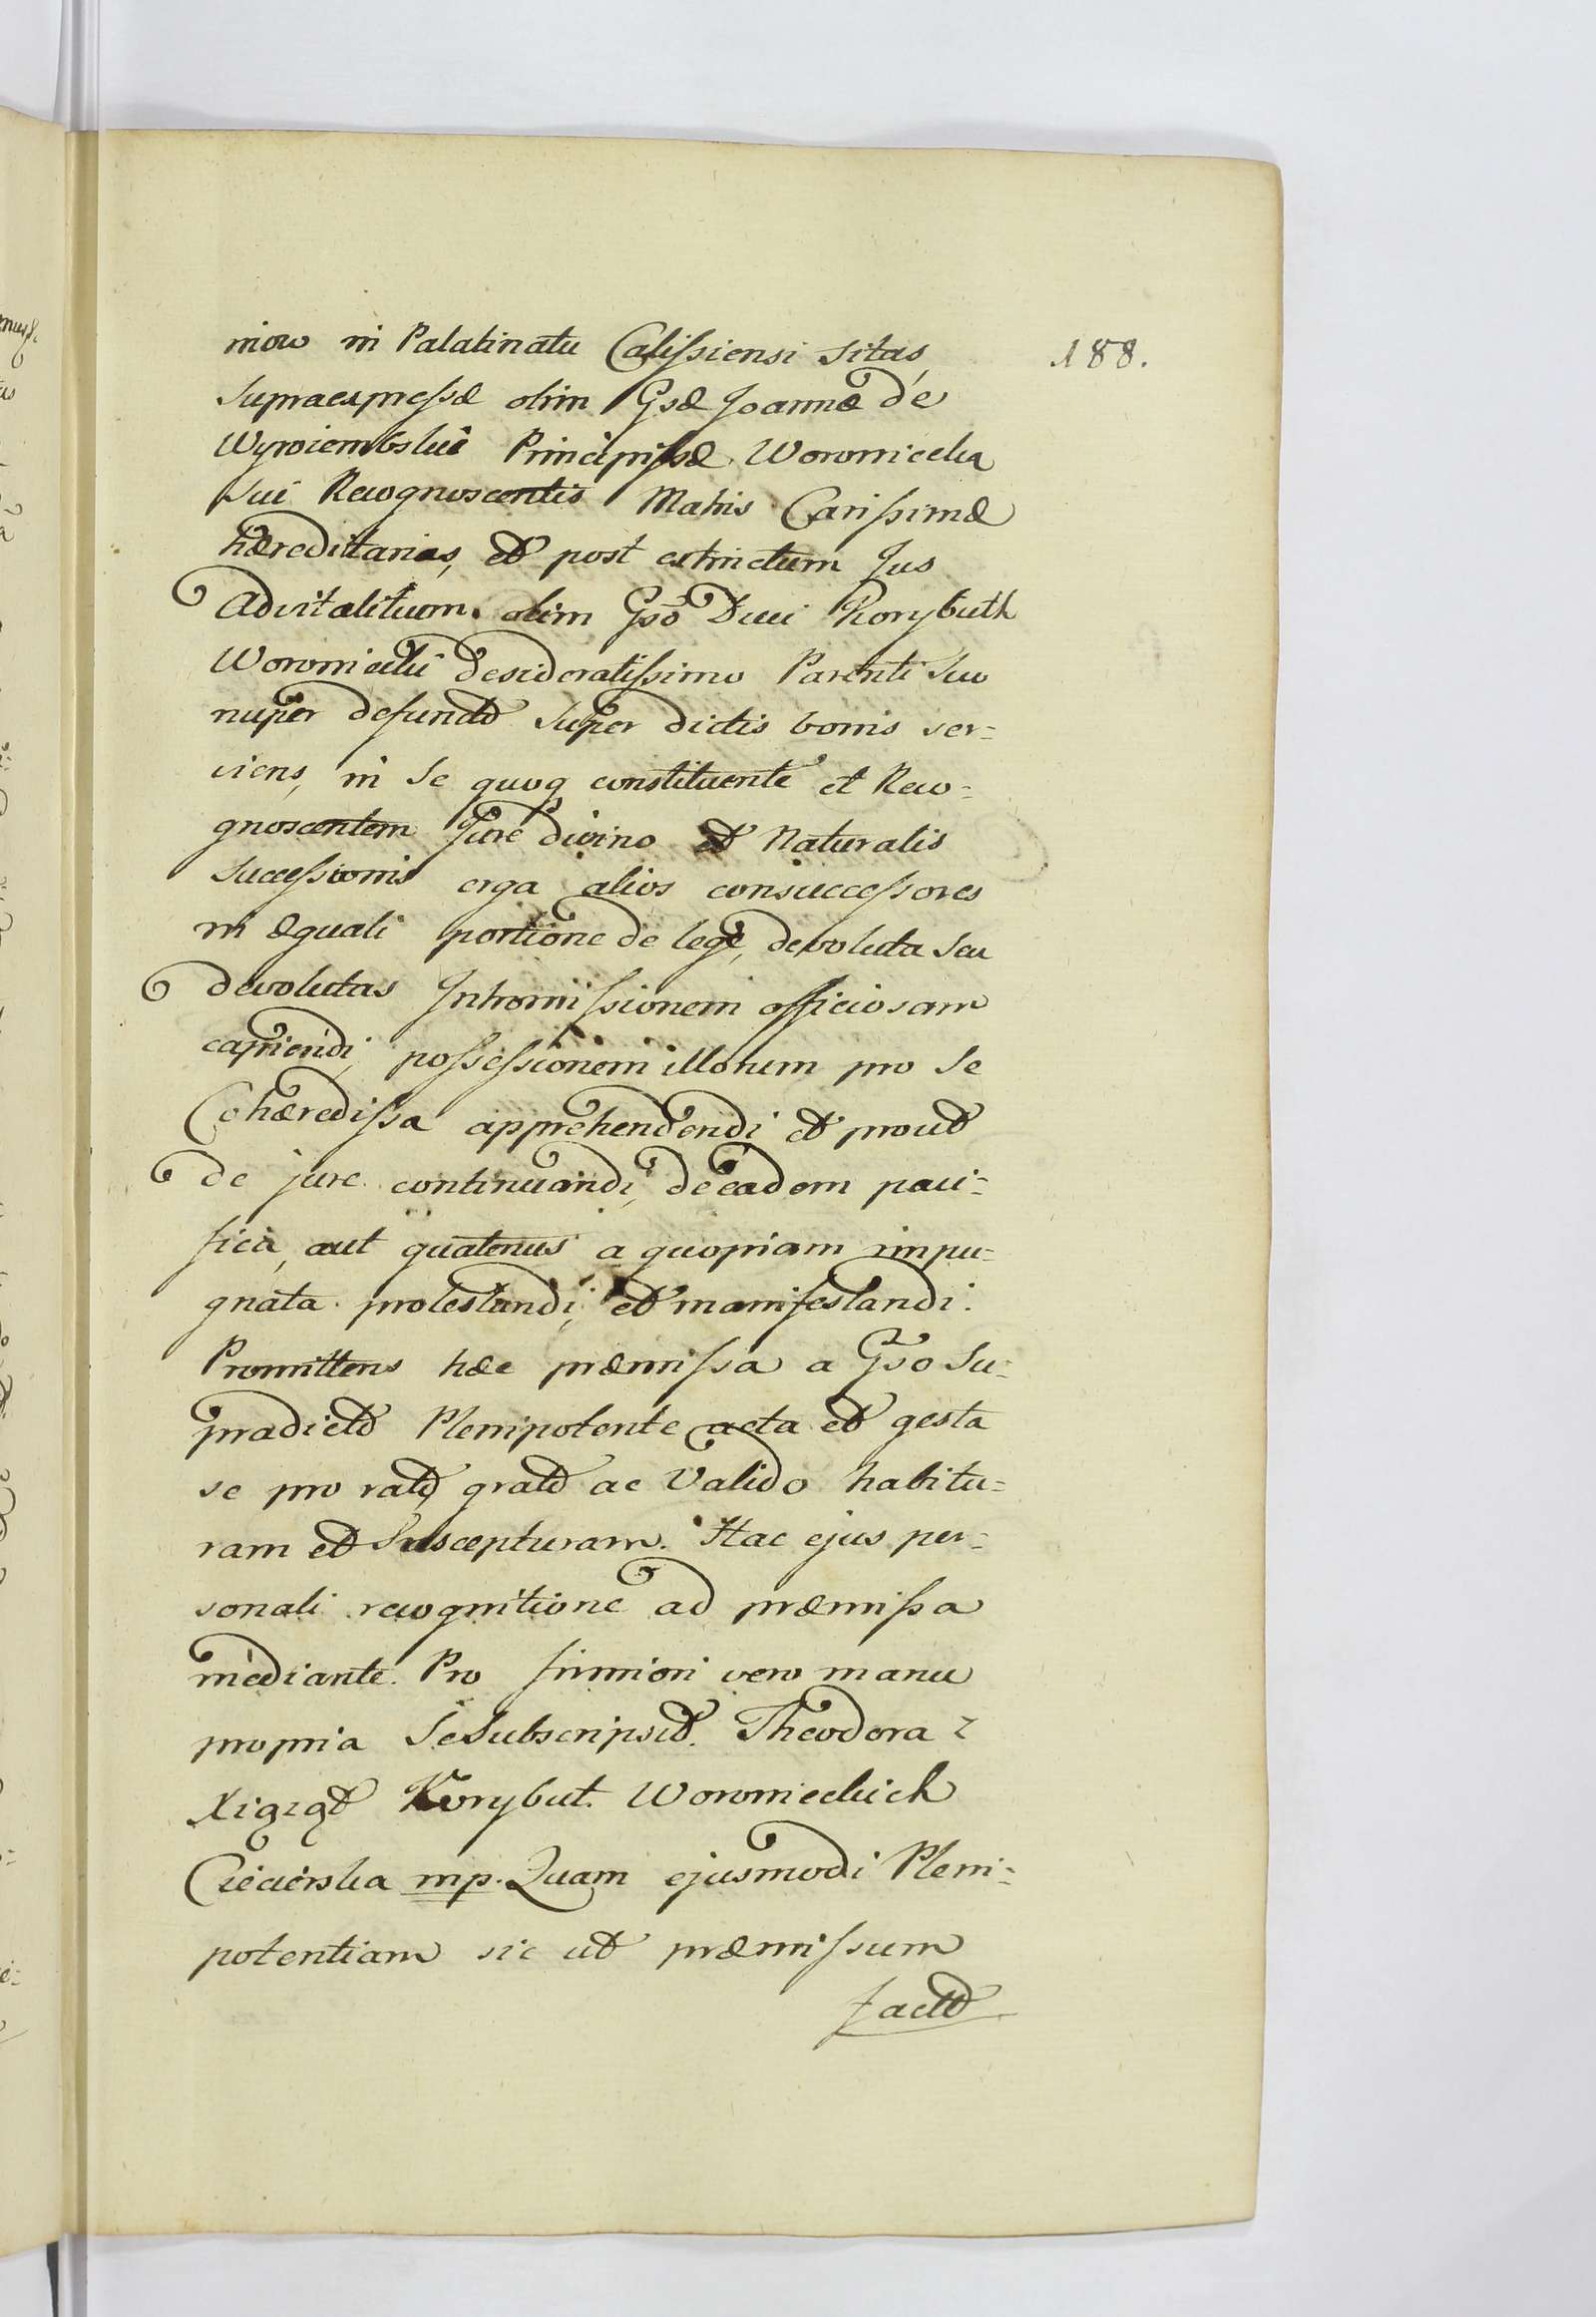 niow in Palatinatu Calissiensi sitas,
188.
supraexpressæ olim Gsæ Joannæ de
Woronieckа
sui Recognoscentis Matris Carissimæ
hæreditarias, et post extinctum Jus
Advitalituom olim Gso Duci Korybuth
Woroniecki desideratissimo Parenti suo
nuper defuncto super dictis bonis ser=
viens, in se quoq constituente et Reco=
gnoscentem Jure divino et Naturalis
successionis erga alios consuccessores
in æquali portione de lege, devoluta seu
devolutas Intromissionem officiosam
capiendi, possessionem illorum pro se
Cohæredissa apprehendendi et prout
de jure continuandi, de eadem paci=
fica, aut quatenus a quopiam impu=
gnata protestandi, et manifestandi.
Promittens hæc præmissa a Gso Su=
pradicto Plenipotente acta et gesta
se pro rato, grato ac Valido habitu=
ram et Suscepturam. Hac ejus per=
sonali recognitione ad præmissa
mediante. Pro firmiori vero manu
propria Se Subscripsit. Theodora z
Xiążąt Korybut. Woronieckich
Ciecierska mp. Quam ejusmodi Pleni=
potentiam sic ut præmissum
facto